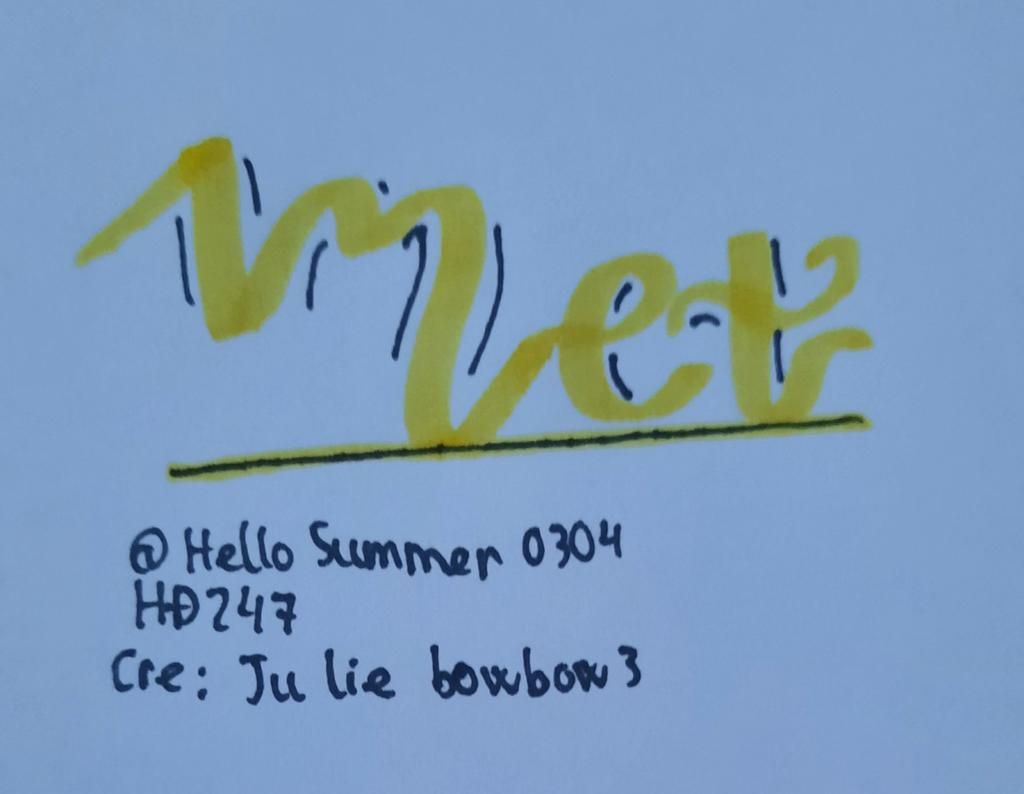 @Hello Summer 0304
HĐ247
Cre: Julie bowbow3